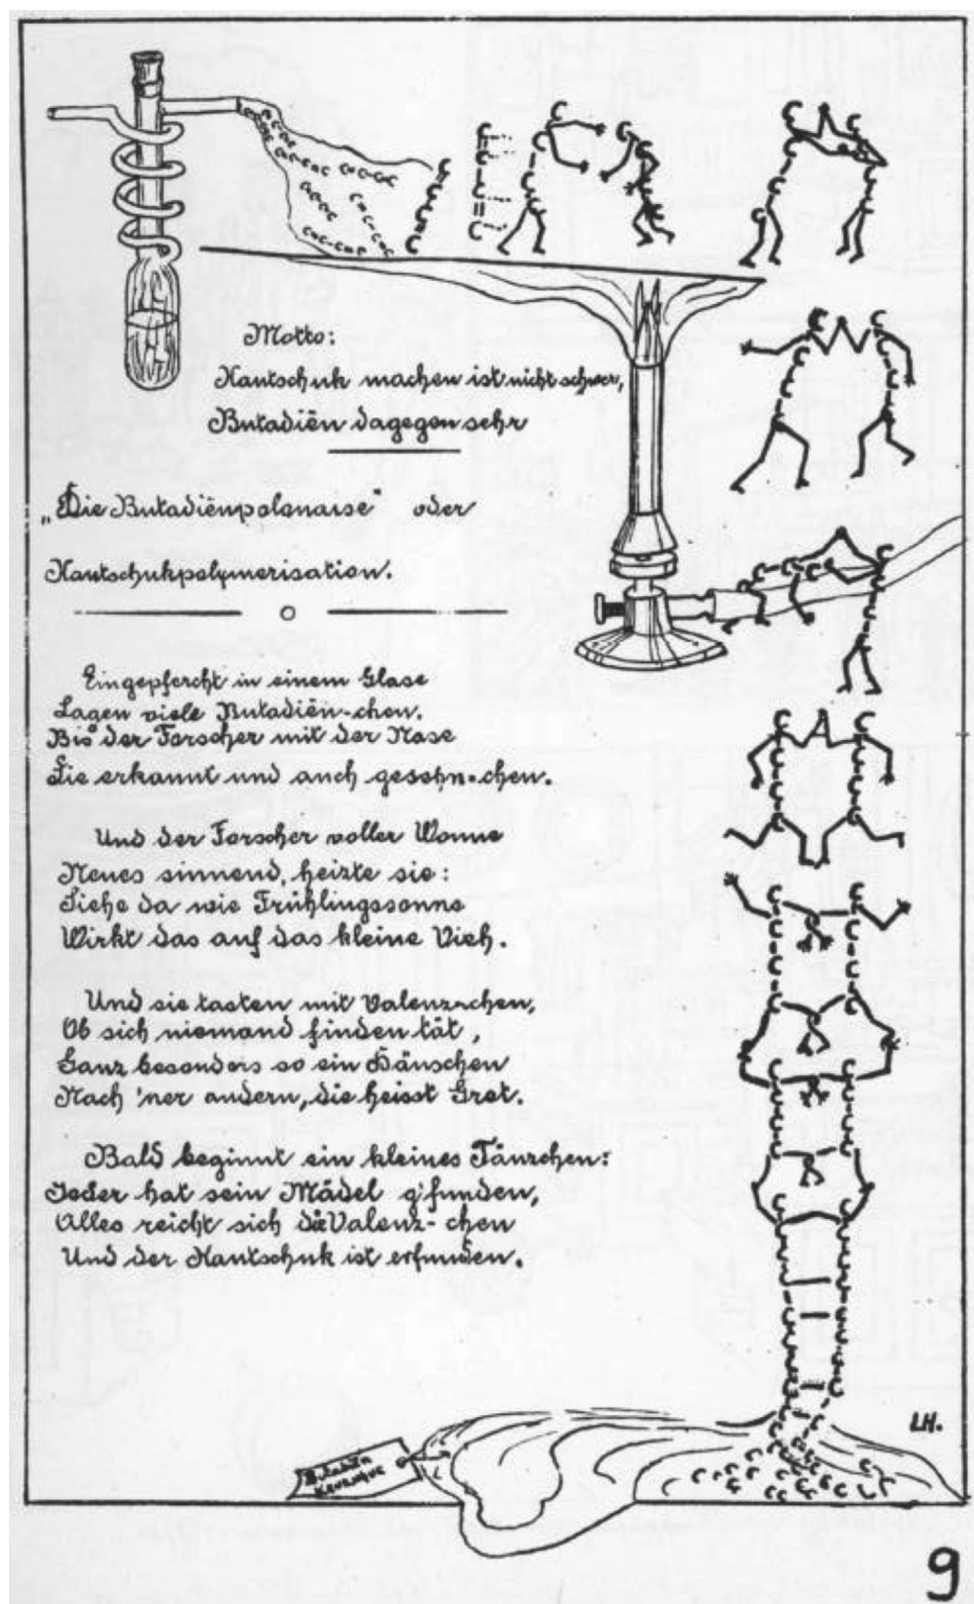 Motto:
Kautschuk machen ist nicht schwer,
Butadiën dagegen sehr
„Die Butadiënpolonaise" oder
Kautschukpolymerisation.
Eingepfercht in einem Glase
Lagen viele Butadiën-chen.
Bis der Forscher mit der Nase
Sie erkannt und auch gesehn-chen.
Und der Forscher voller Wonne
Neues sinnend, heizte sie:
Siehe da wie Frühlingssonne
Wirkt das auf das kleine Vieh.
Und sie tasten mit Valenz-chen,
Ob sich niemand finden tät,
Ganz besonders so ein Hänschen
Nach 'ner andern, die heisst Gret.
Bald beginnt ein kleines Tänzchen:
Jeder hat sein Mädel g'funden,
Alles reicht sich da Valenz-chen
Und der Kautschuk ist erfunden.
LH.
Butadiën
9